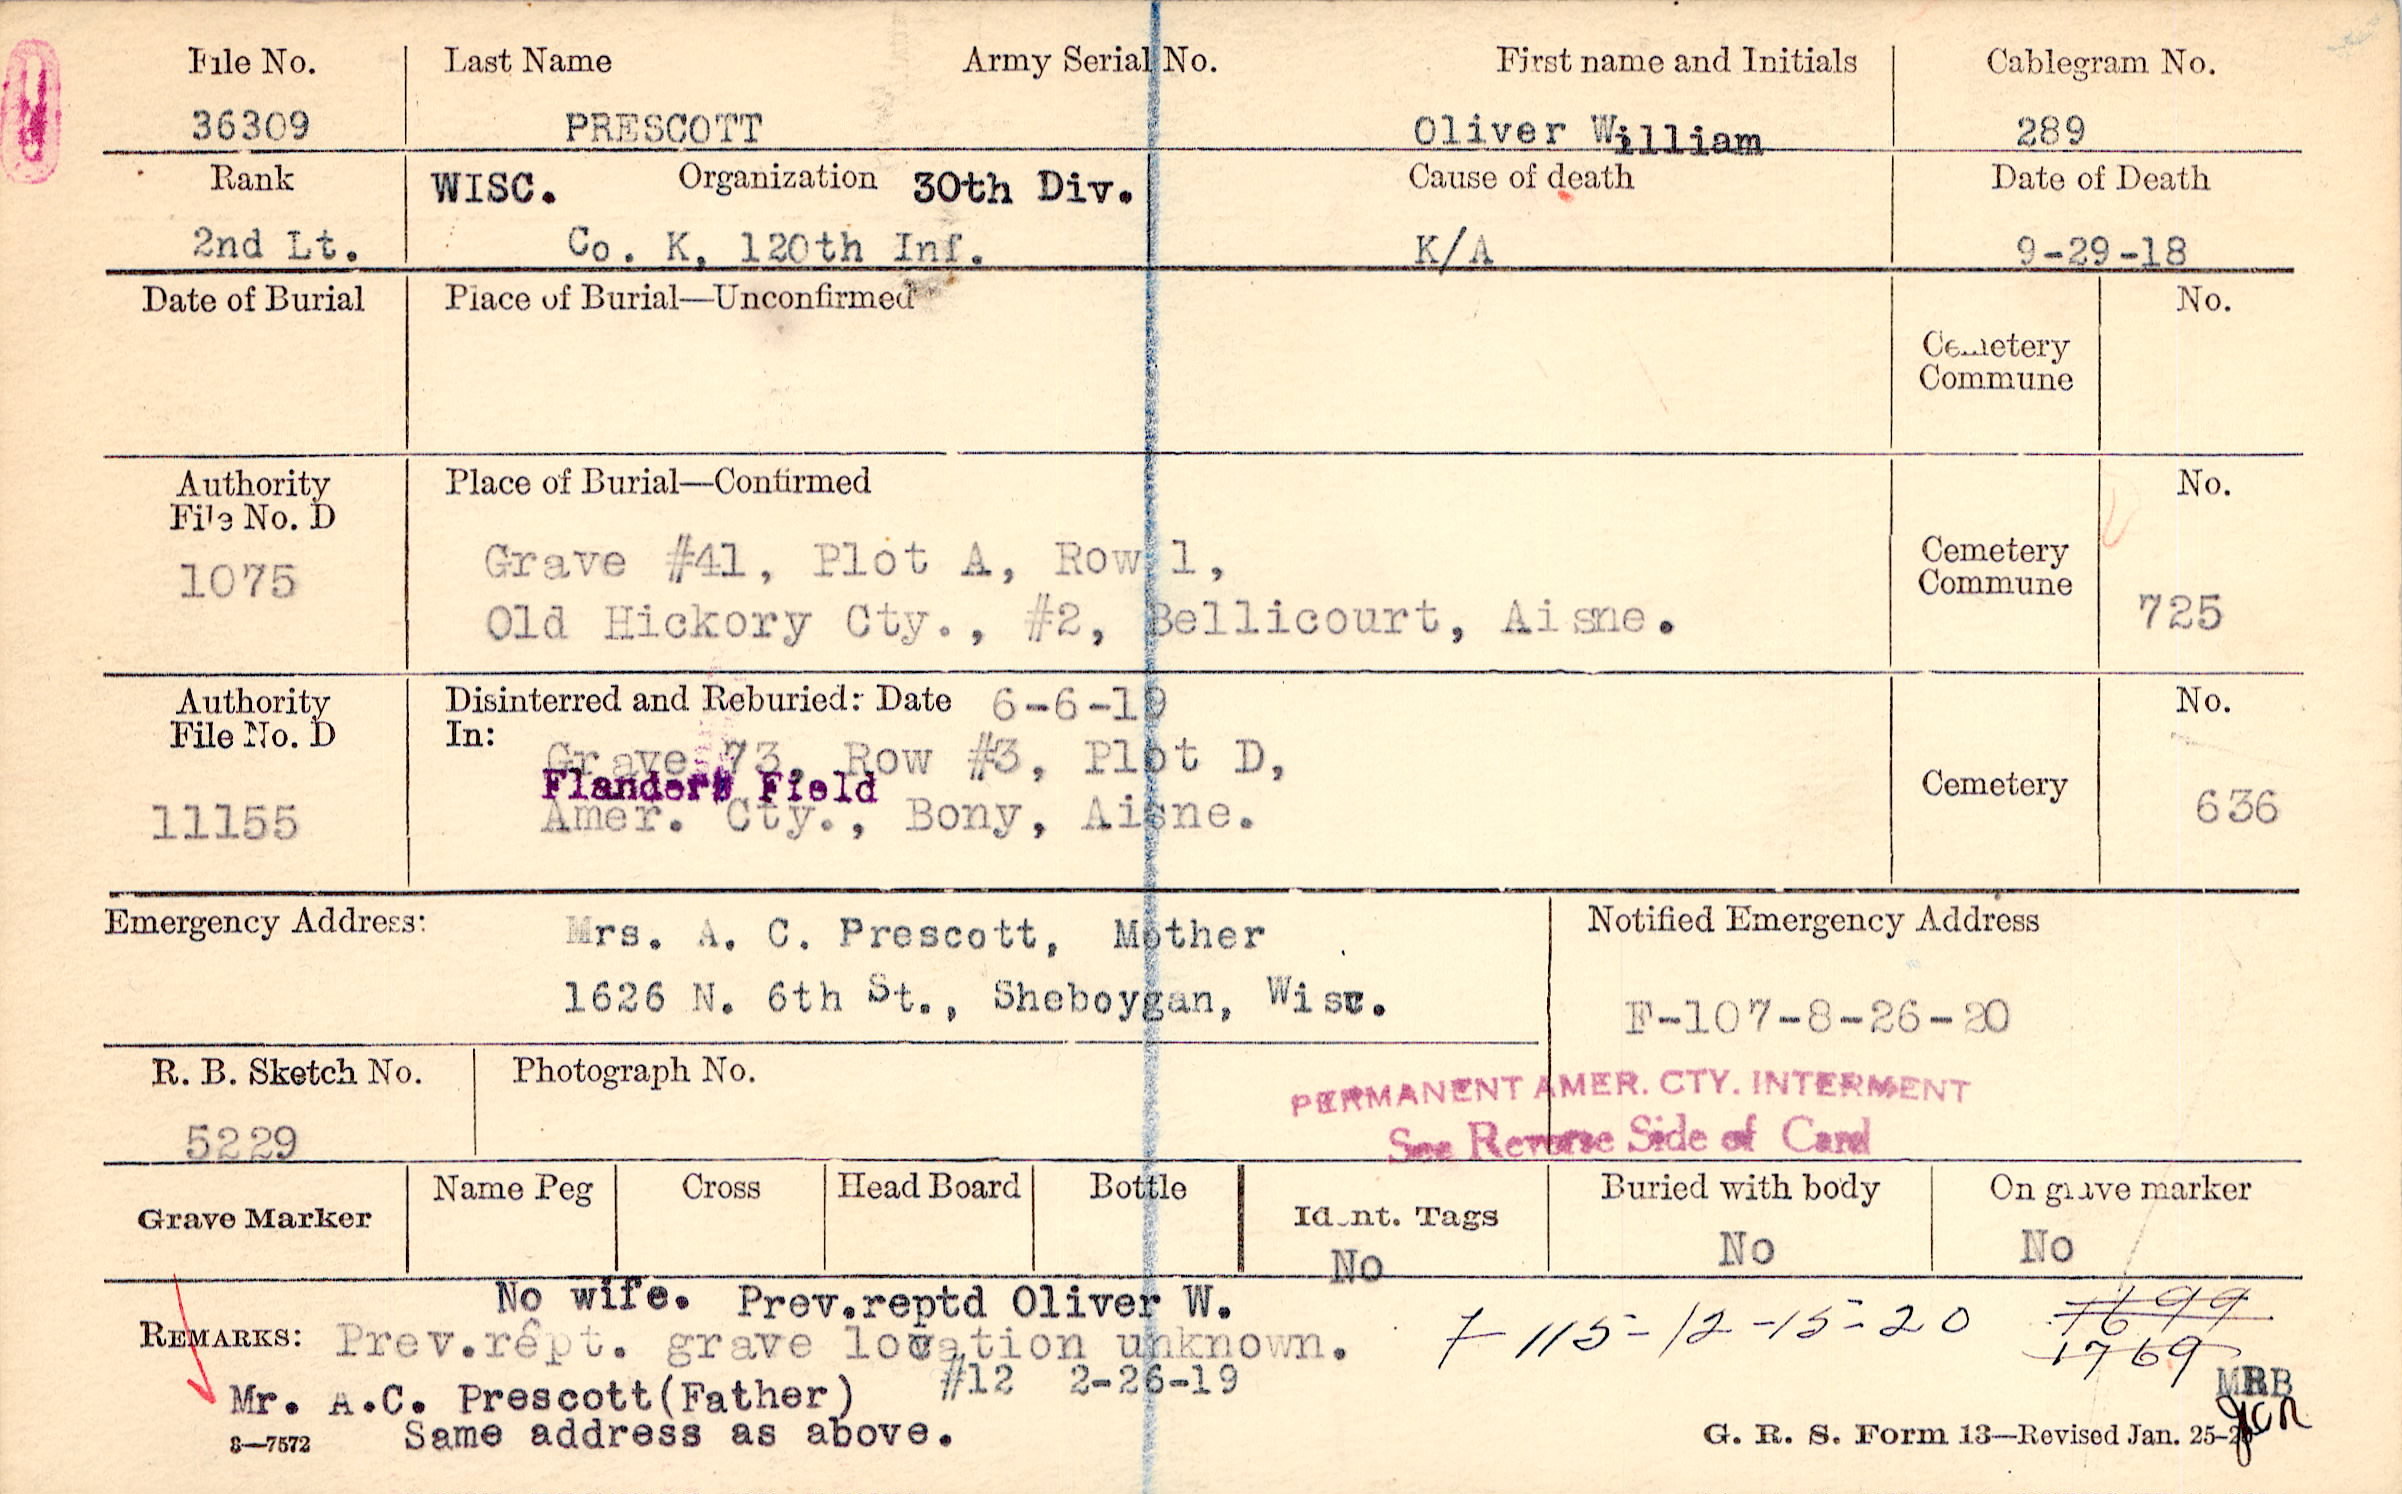 File No. Last Name Army Serial No. First name and Initials Cablegram No.
36309 PRESCOTT Oliver William 289
Rank WISC. Organization 30th Div. Cause of death Date of Death
2nd Lt. Co. K, 120th Inf. K/A 9-29-18
Date of Burial Place of Burial—Unconfirmed No.
Cemetery
Commune
Authority Place of Burial—Confirmed No.
File No. D
1075 Grave #41, Plot A, Row 1, Cemetery
Commune
Old Hickory Cty., #2, Bellicourt, Aisne. 725
Authority Disinterred and Reburied: Date 6-6-19 No.
File No. D In:
Grave 73, Row #3, Plot D,
Flanders Field Cemetery
11155 Amer. Cty., Bony, Aisne. 636
Emergency Address: Mrs. A. C. Prescott, Mother Notified Emergency Address
1626 N. 6th St., Sheboygan, Wisc. F-107-8-26-20
R. B. Sketch No. Photograph No.
PERMANENT AMER. CTY. INTERMENT
5229 See Reverse Side of Card
Grave Marker Name Peg Cross Head Board Bottle Ident. Tags Buried with body On grave marker
No No No
No wife. Prev.reptd Oliver W.
REMARKS: Prev.rept. grave location unknown. 7-115-12-15-20 1699
#12 2-26-19 1769
Mr. A.C. Prescott(Father) MRB
Same address as above.
8—7572 G. R. S. Form 13—Revised Jan. 25-